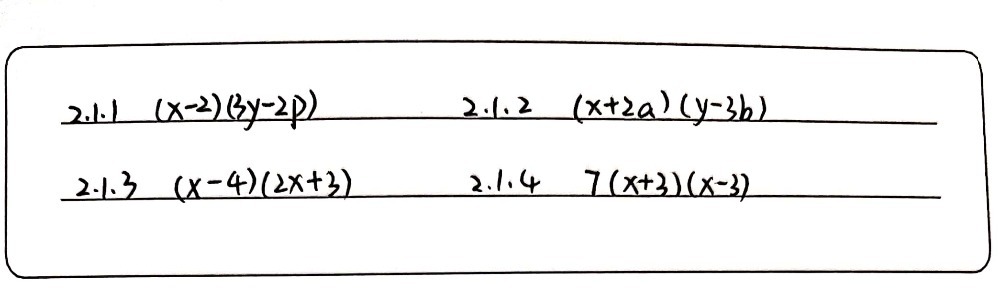 2.1.1 (x-2)(3y-2p) 2.1.2 (x+2a)(y-3b)
2.1.3 (x-4)(2x+3) 2.1.4 7(x+3)(x-3)